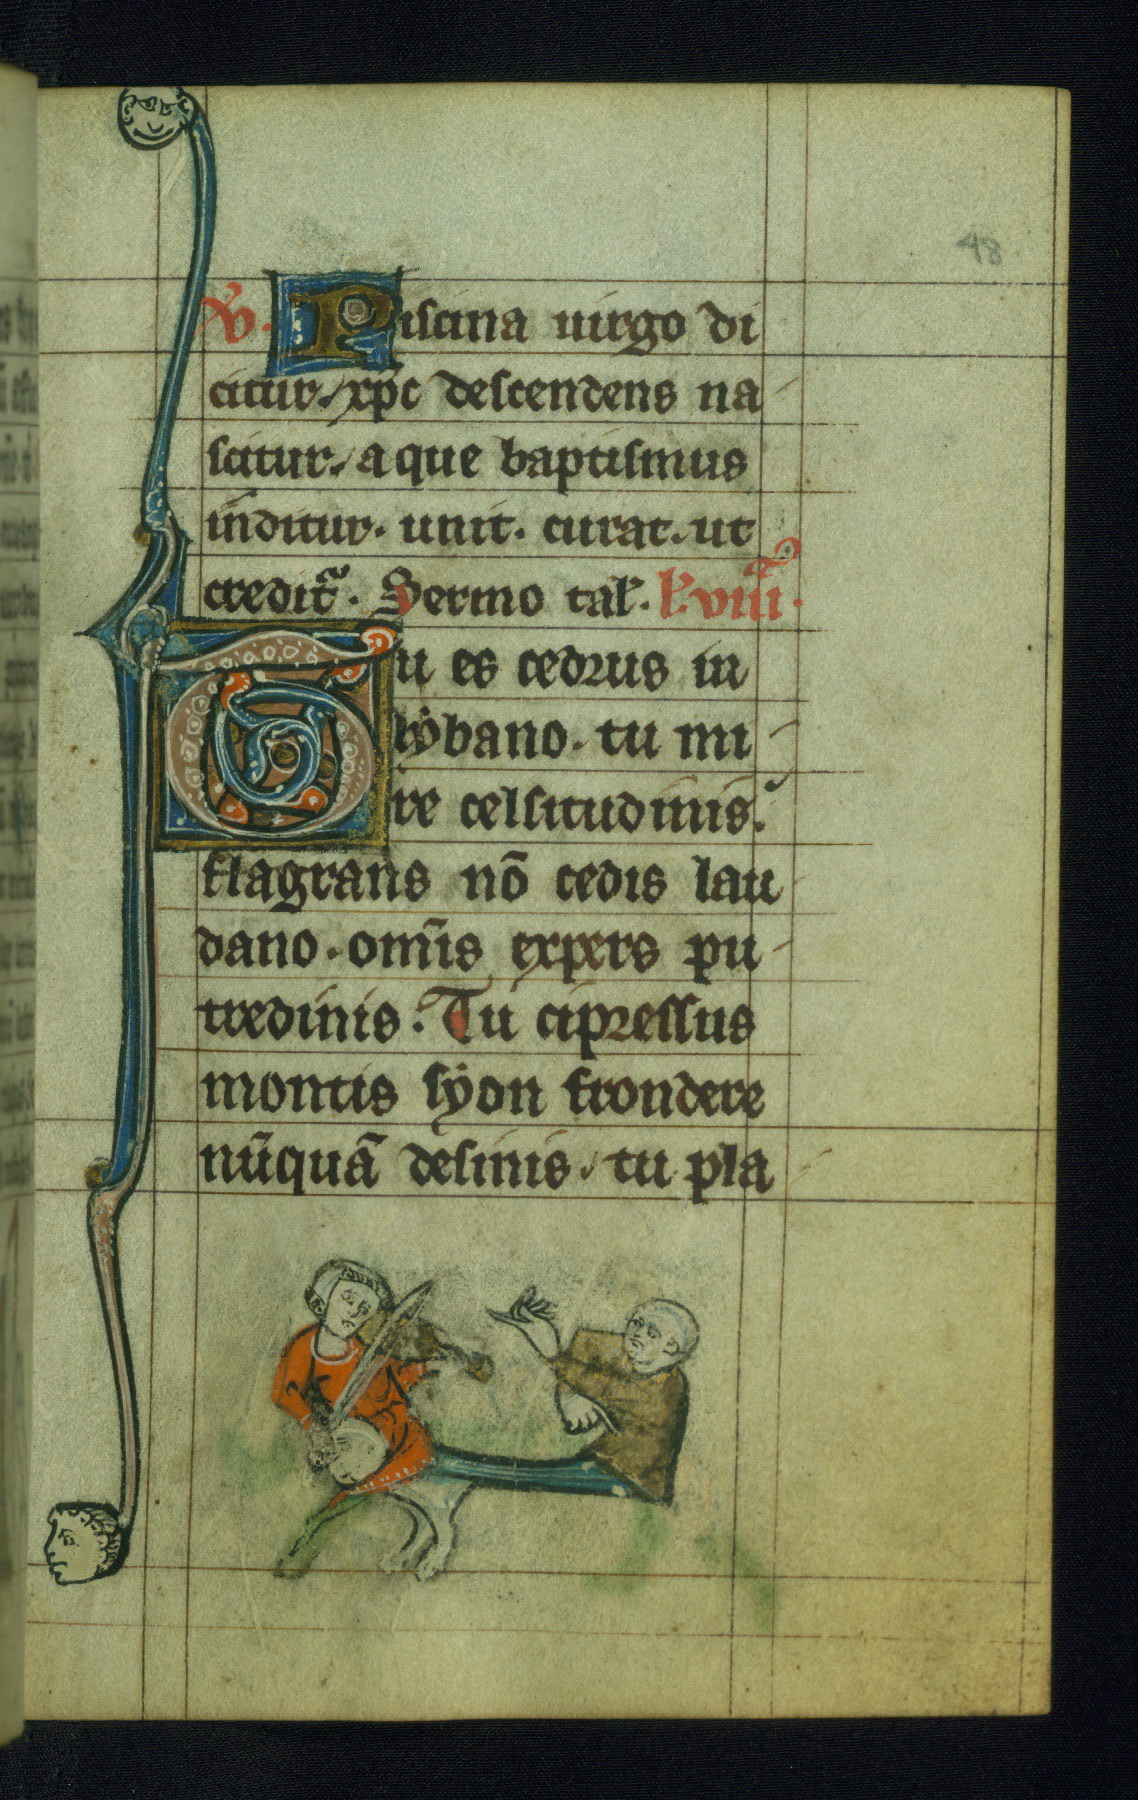 48
V̓. Piscina uirgo di
citur. xp̄c descendens na
scitur. aque baptismus
inditur. unit. curat. ut
credit᷑. Sermo tal̓. l̓. viiii᷑.
Tu es cedrus in
lẏbano. tu mi
re celsitudinis.
flagrans nō cedis lau
dano. om̄is expers pu
tredinis. Tu cipressus
montis sẏon frondere
nūquā desinis. tu pla